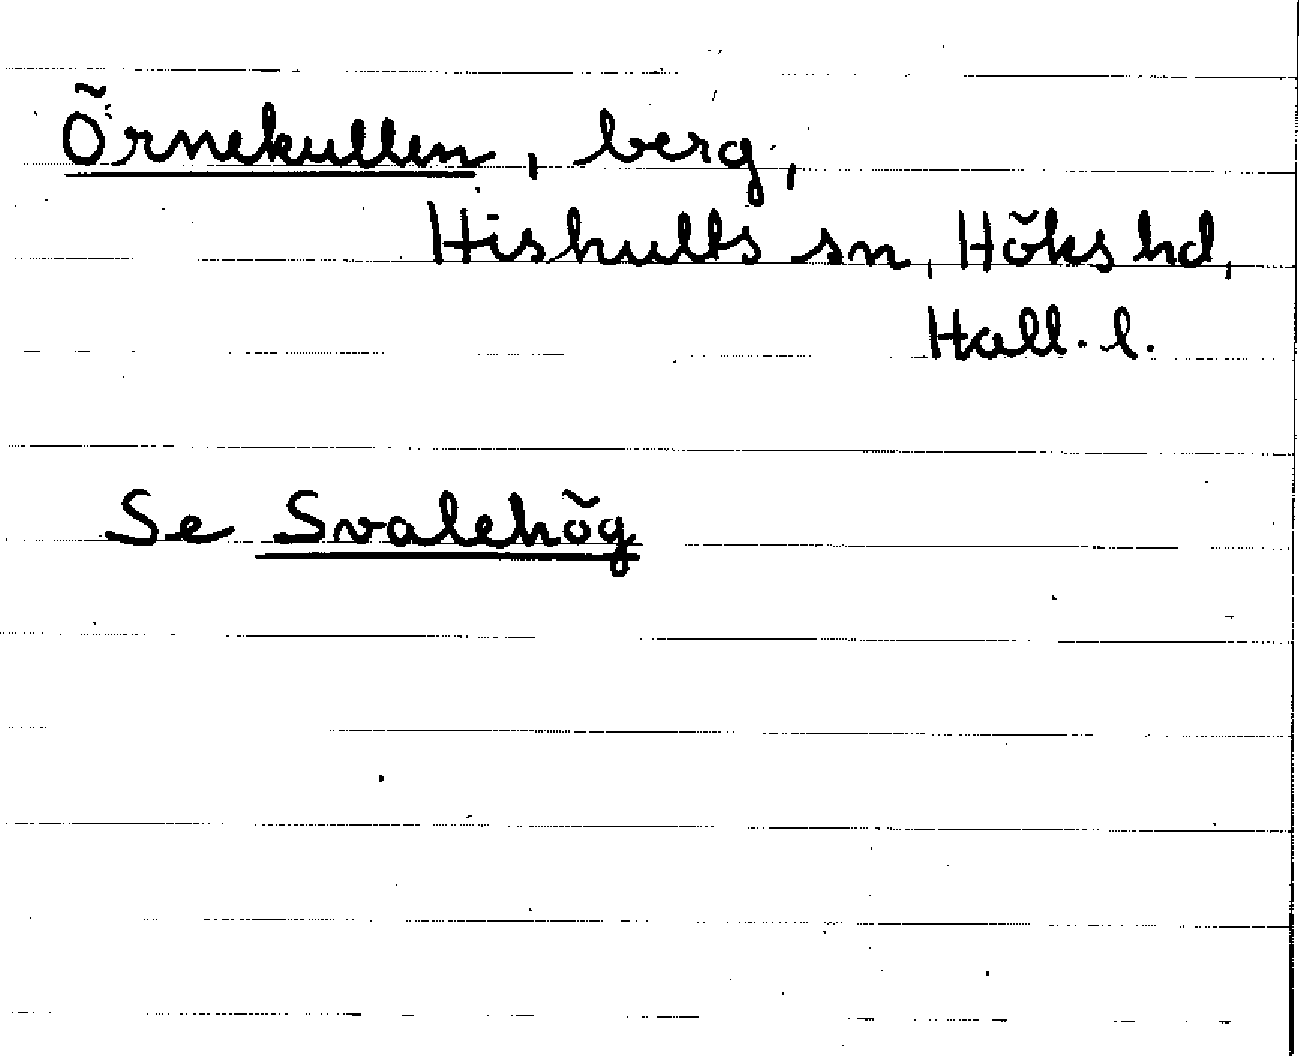 Örnekullen, berg,
Hishults sn, Höks hd,
Hall. l.
Se Svalehög